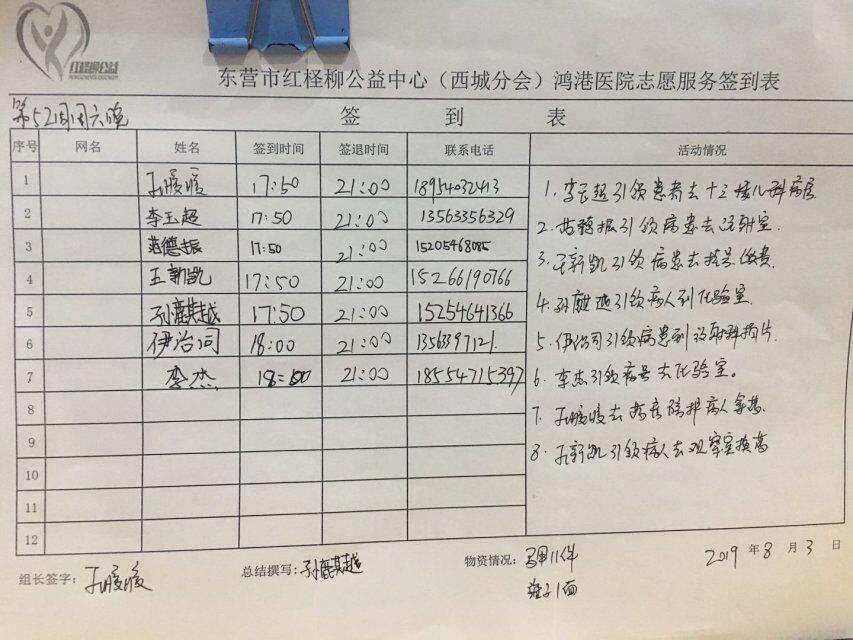 红柽柳公益
东营市红柽柳公益中心（西城分会）鸿港医院志愿服务签到表
第52周周六晚
签 到 表
序号 网名 姓名 签到时间 签退时间 联系电话 活动情况
1 暖暖 17:50 21:00 18954032413
2 李玉超 17:50 21:00 13563356329
3 范德振 17:50 21:00 15205468085
4 王新凯 17:50 21:00 15266190766
5 孙麒越 17:50 21:00 15254641366
6 伊治同 18:00 21:00 1356397121
7 李杰 18:00 21:00 18554715397
8
9
10
11
12
1. 李玉超引领患者去十三楼儿科病房
2. 范德振引领病患去注射室.
3. 王新凯引领病患去挂号缴费.
4. 孙麒越引领病人到化验室.
5. 伊治同引领病患到放射科拍片
6. 李杰引领病号去化验室。
7. 暖暖去 病人
8. 王新凯引领病人去观察室
组长签字： 暖暖
总结撰写：孙麒越
物资情况： 马甲11件
旗子1面
2019 年 8 月 3 日